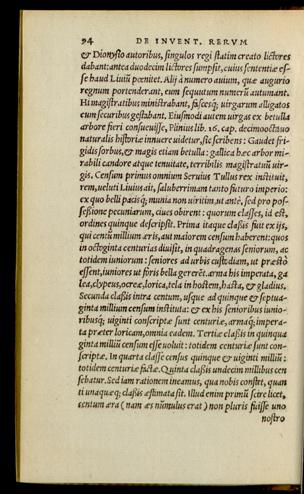 94 DE INVENT. RERVM
& Dionysio autoribus, singulos regi statim creato lictores
dabant: antea duodecim lictores sumpsit, cuius sententiæ es-
se haud Liuiũ pœnitet. Alij à numero auium, quæ augurio
regnum portenderant, eum sequutum numerũ autumant.
Hi magistratibus ministrabant, fascesq; uirgarum alligatos
cum securibus gestabant. Eiusmodi autem uirgas ex betulla
arbore fieri consueuisse, Plinius lib. 16. cap. decimooctauo
naturalis historiæ innuere uidetur, sic scribens: Gaudet fri-
gidis sorbus, & magis etiam betulla: gallica hæc arbor mi-
rabili candore atque tenuitate, terribilis magistratuũ uir-
gis. Censum primus omnium Seruius Tullus rex instituit,
rem, ueluti Liuius ait, saluberrimam tanto futuro imperio:
ex quo belli pacisq; munia non uiritim, ut antè, sed pro pos-
sessione pecuniarum, ciues obirent: quorum classes, id est,
ordines quinque descripsit. Prima itaque classis fuit ex ijs,
qui centũ millium æris, aut maiorem censum haberent: quos
in octoginta centurias diuisit, in quadragenas seniorum, ac
totidem iuniorum: seniores ad urbis custodiam, ut præstò
essent, iuniores ut foris bella gererẽt. arma his imperata, ga
lea, clypeus, ocreæ, lorica, tela in hostem, hasta, & gladius.
Secunda classis intra centum, usque ad quinque & septua-
ginta millium censum instituta: & ex his senioribus iunio-
ribusq; uiginti conscriptæ sunt centuriæ, armaq; impera-
ta præter loricam, omnia eadem. Tertiæ classis in quinqua
ginta milliũ censum esse uoluit: totidem centuriæ sunt con-
scriptæ. In quarta classe census quinque & uiginti milliũ:
totidem centuriæ factæ. Quinta classis undecim millibus cen
sebatur. Sed iam rationem ineamus, qua nobis constet, quan
ti unaquæq; classis æstimata sit. Illud enim primũ scire licet,
centum æra (nam æs nũmulus erat) non pluris fuisse uno
nostro